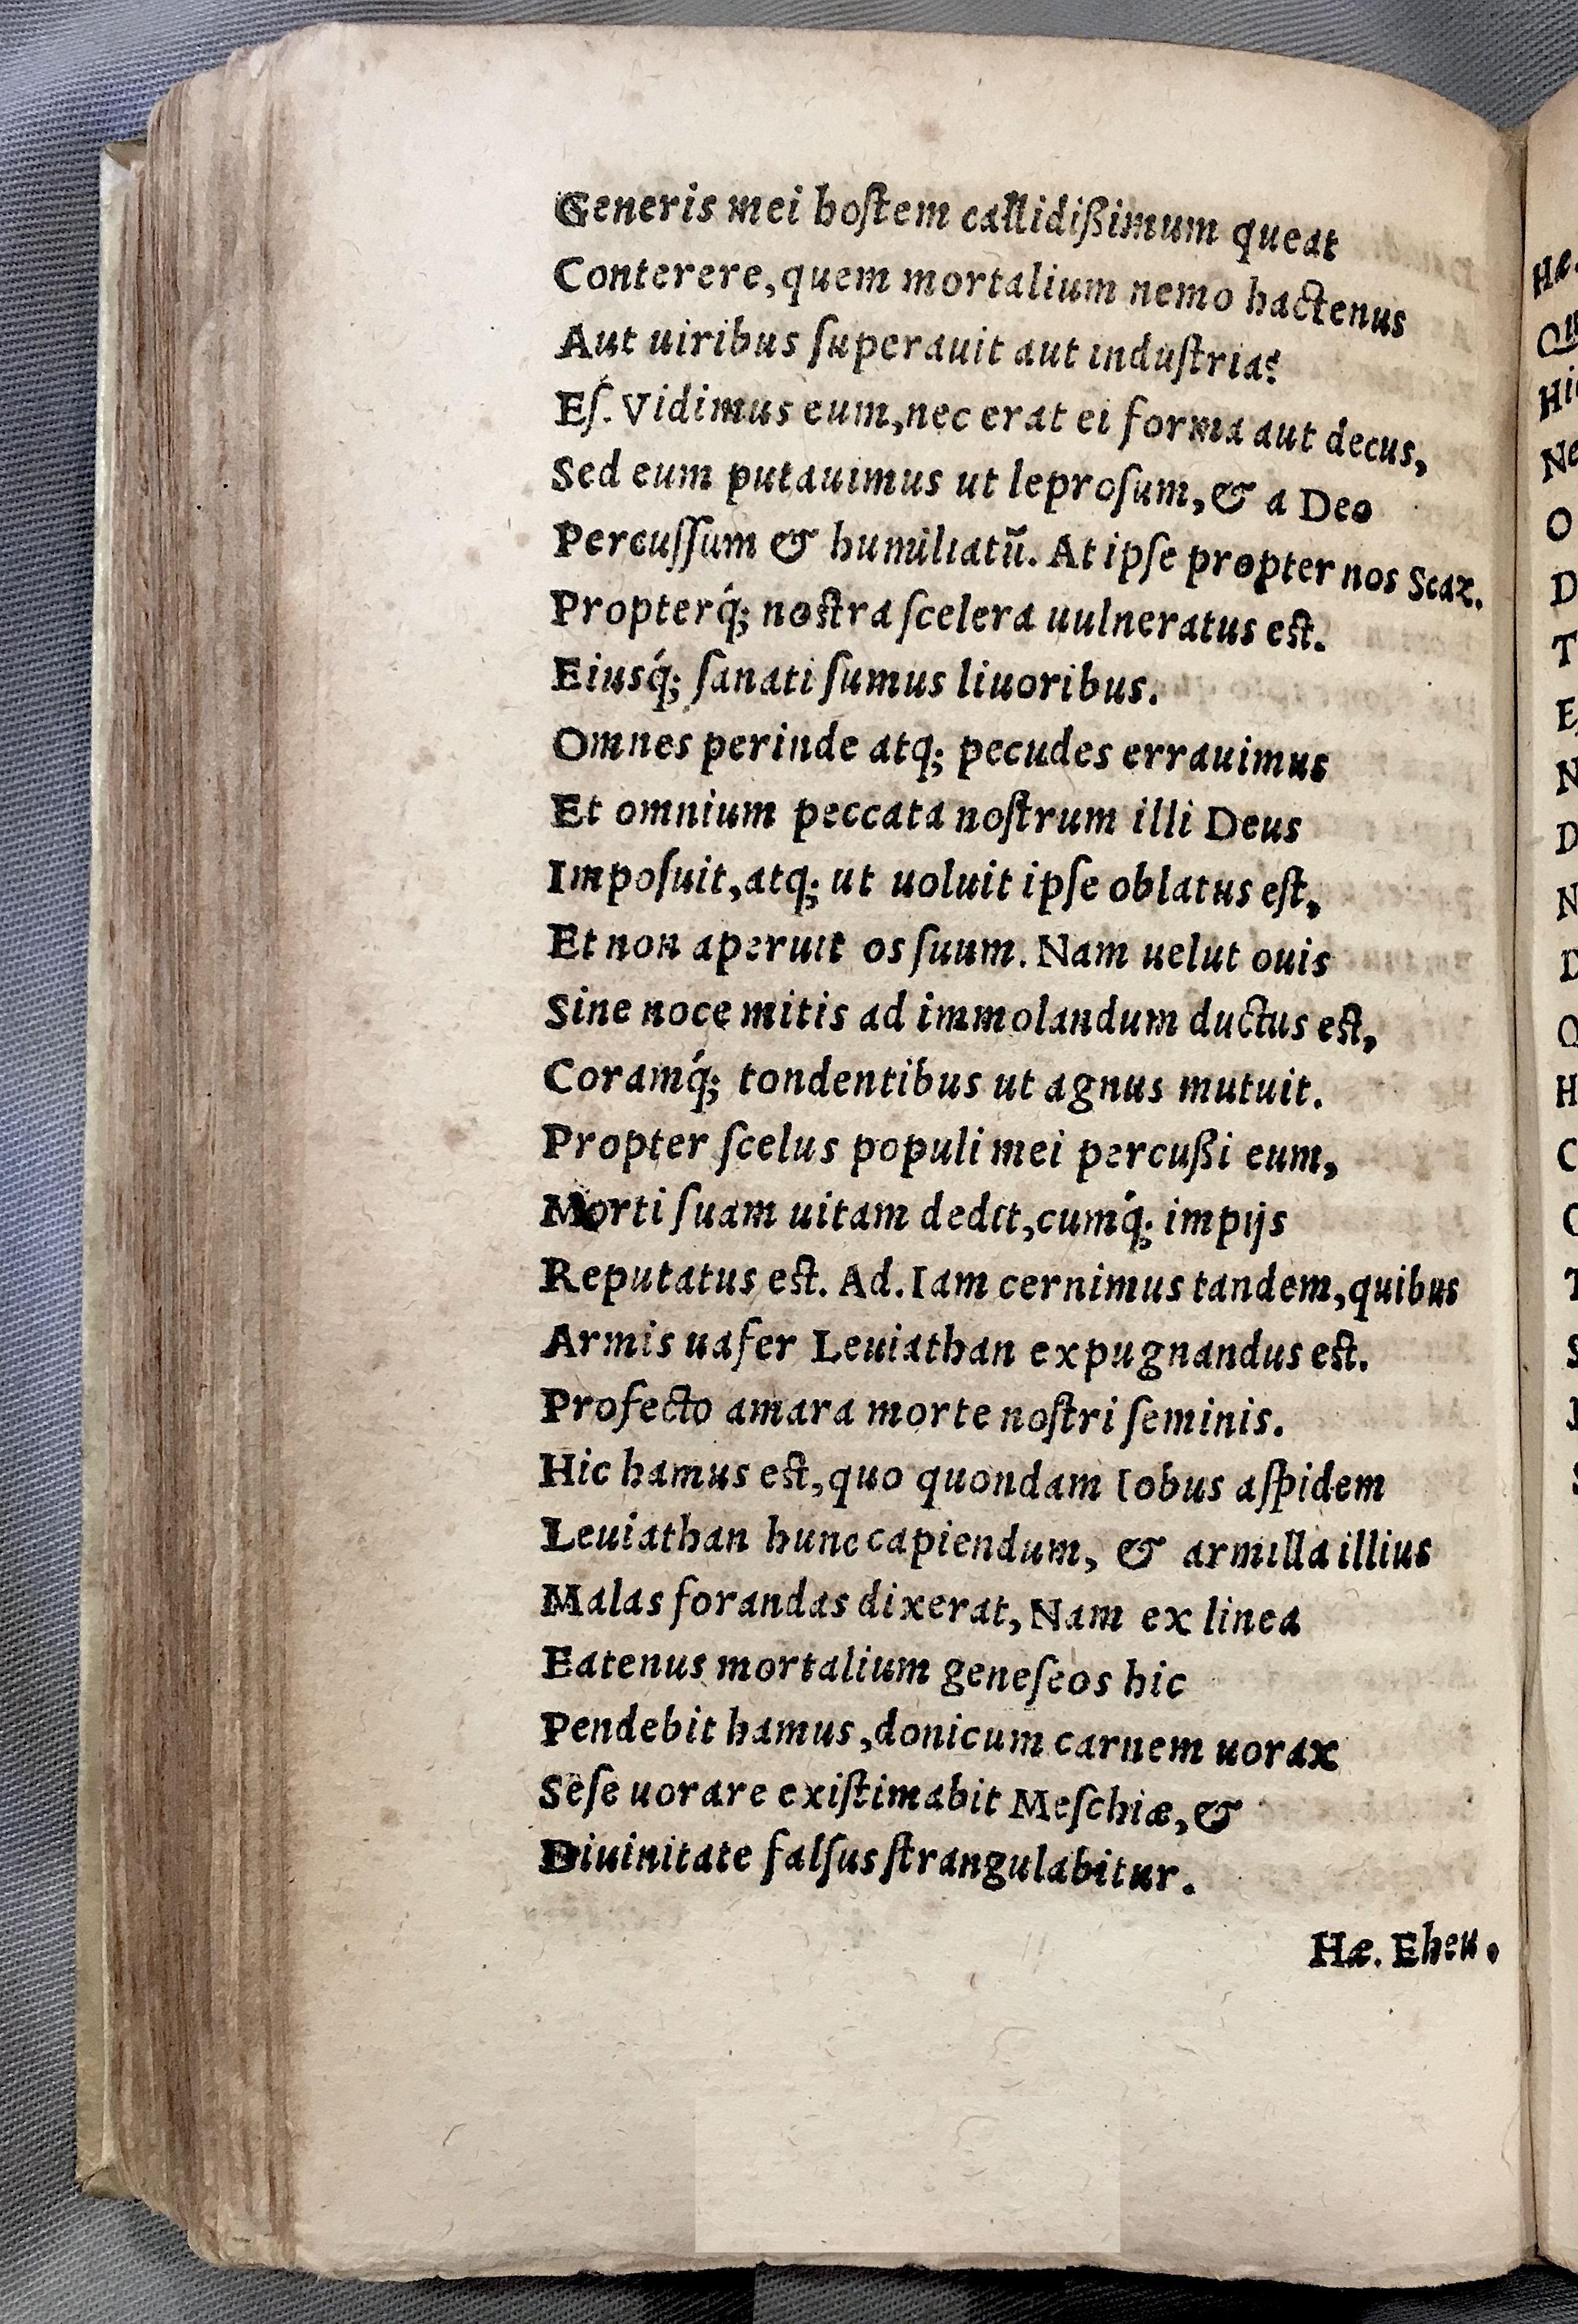 Generis mei hoſtem callidißimum queat
Conterere, quem mortalium nemo hactenus
Aut uiribus ſuperauit aut induſtria?
Eſ. Vidimus eum, nec erat ei forma aut decus,
Sed eum putauimus ut leproſum, & a Deo
Percuſſum & humiliatū. At ipſe propter nos Scaz.
Propterq́; noſtra ſcelera uulneratus eſt.
Eiusq́; ſanati ſumus liuoribus.
Omnes perinde atq; pecudes errauimus
Et omnium peccata noſtrum illi Deus
Impoſuit, atq; ut uoluit ipſe oblatus eſt,
Et non aperuit os ſuum. Nam uelut ouis
Sine noce mitis ad immolandum ductus eſt,
Coramq́; tondentibus ut agnus mutuit.
Propter ſcelus populi mei percußi eum,
Morti ſuam uitam dedit, cumq́; impijs
Reputatus eſt. Ad. Iam cernimus tandem, quibus
Armis uafer Leuiathan expugnandus eſt.
Profecto amara morte noſtri ſeminis.
Hic hamus eſt, quo quondam Iobus aſpidem
Leuiathan hunc capiendum, & armilla illius
Malas forandas dixerat, Nam ex linea
Eatenus mortalium geneſeos hic
Pendebit hamus, donicum carnem uorax
Seſe uorare exiſtimabit Meſchiæ, &
Diuinitate falſus ſtrangulabitur.
Hæ. Eheu.